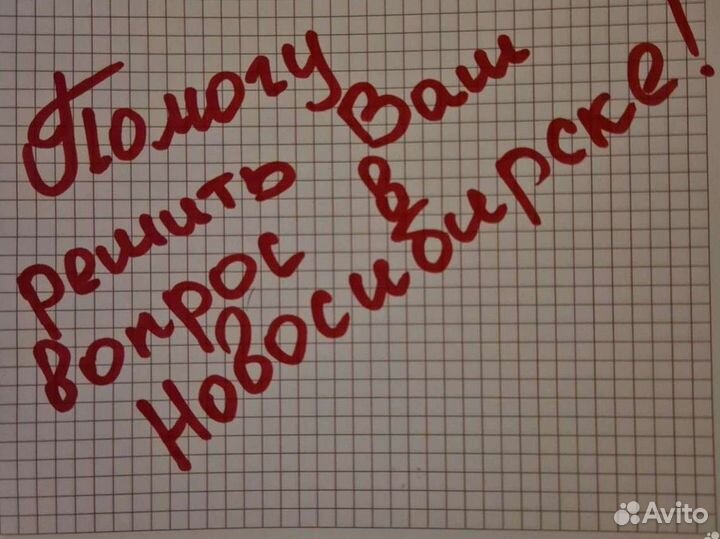 Помогу
решить Ваш
вопрос в
Новосибирске!
Avito